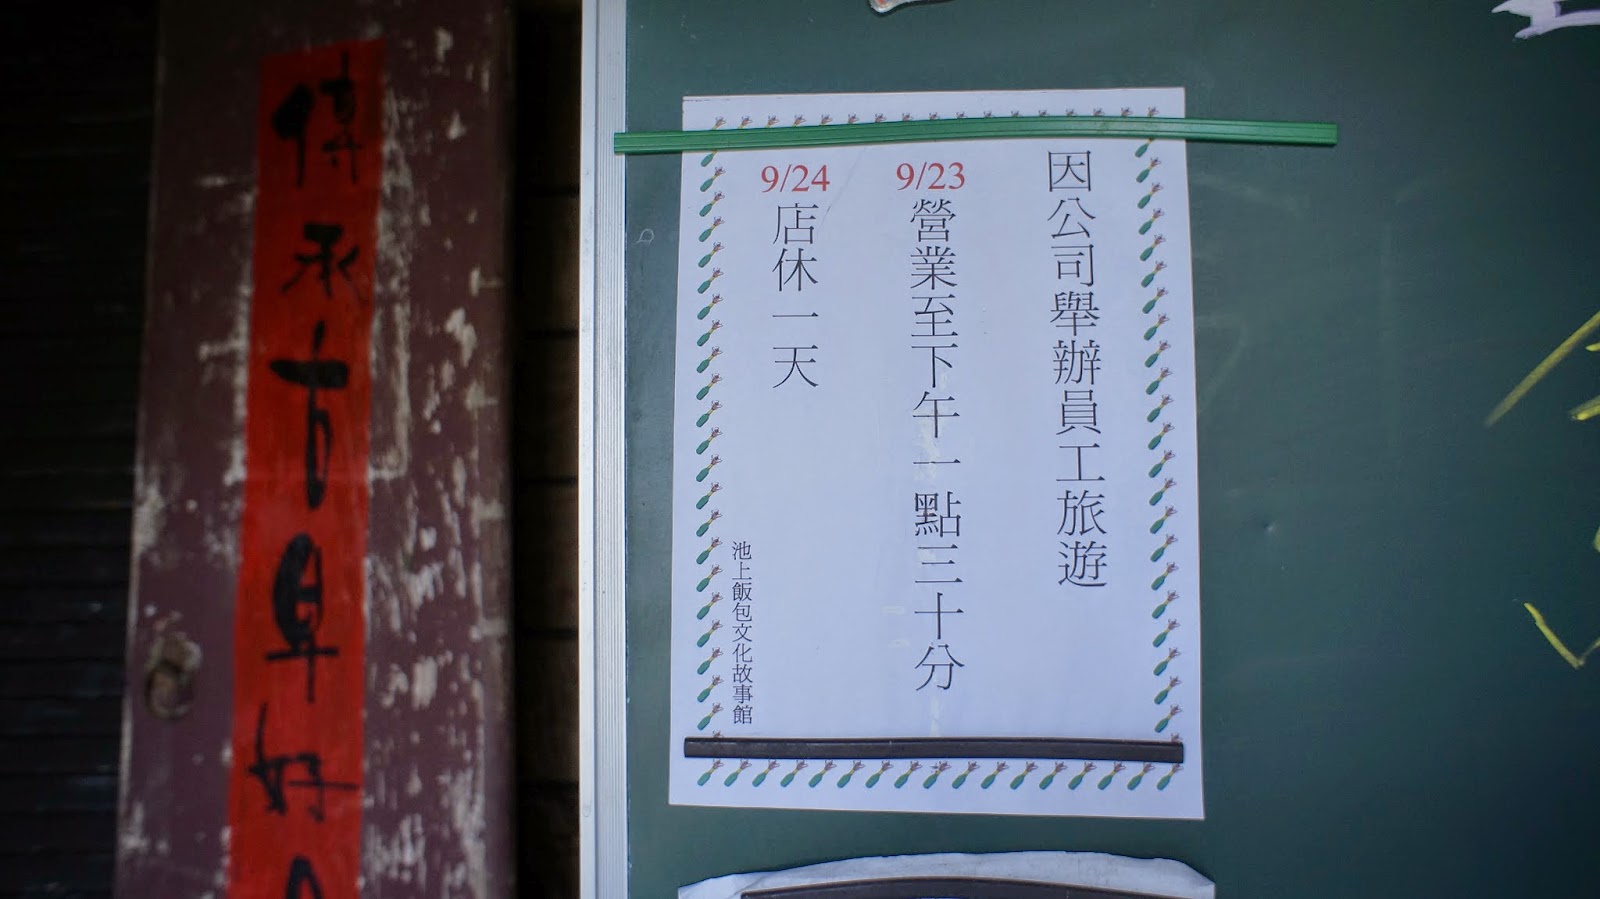 因公司舉辦員工旅遊
9/23營業至下午一點三十分
9/24店休一天
池上飯包文化故事館
傳承古早好